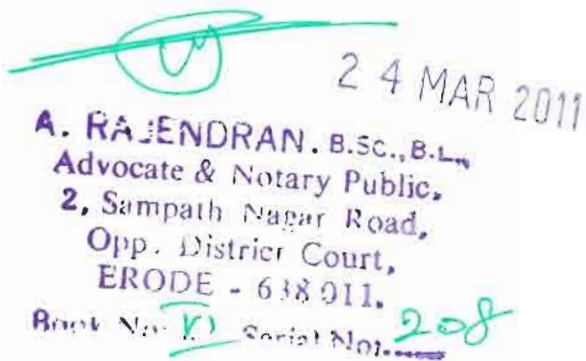 24 MAR 2011
A. RAJENDRAN. B.SC., B.L.,
Advocate & Notary Public,
2, Sampath Nagar Road,
Opp. District Court,
ERODE - 638 011.
Book No: VI Serial No: 208